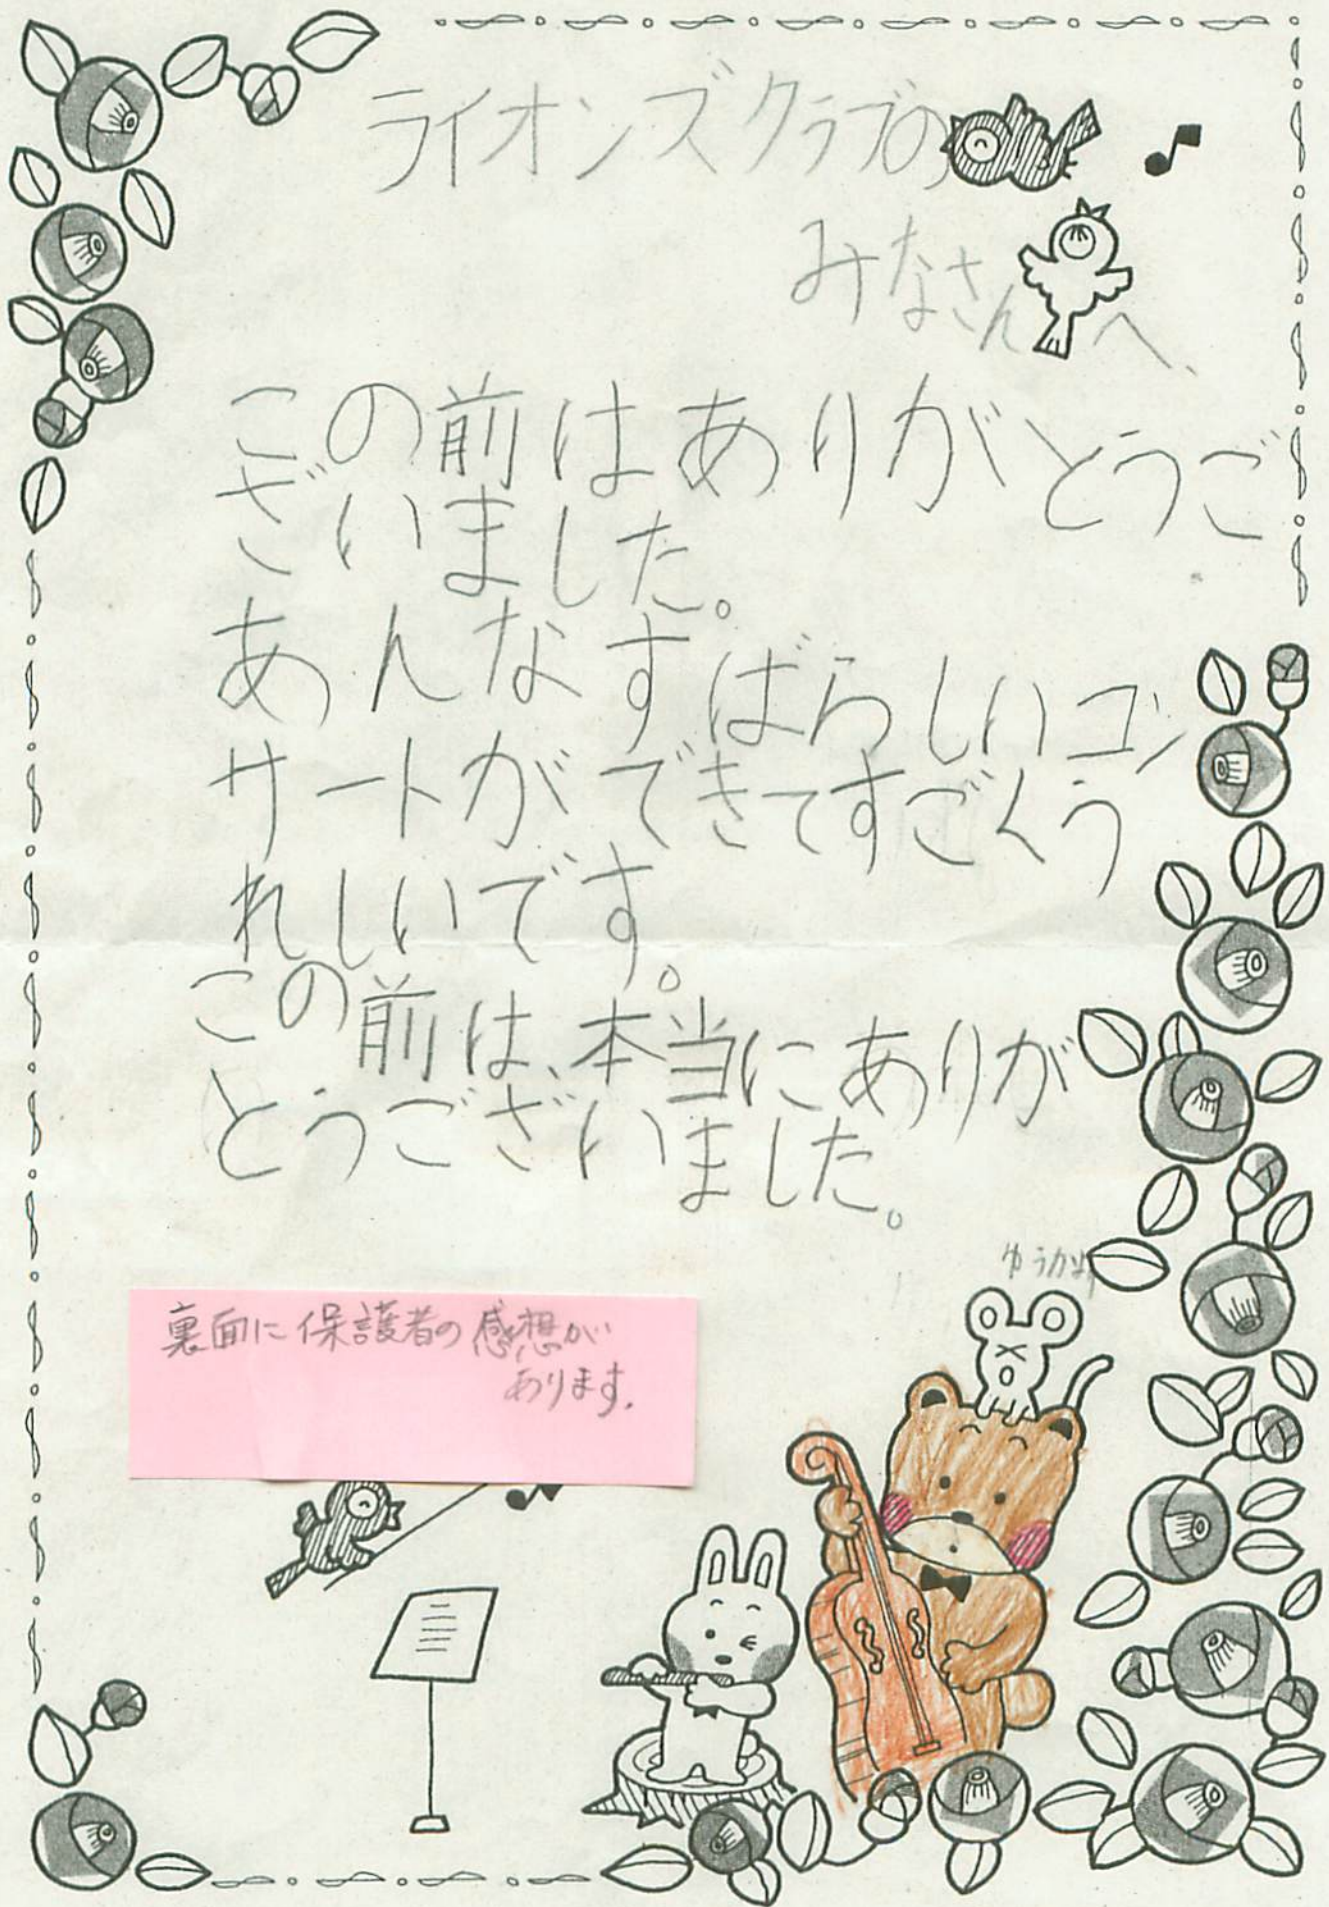 ライオンズクラブの
みなさんへ
この前はありがとうご
ざいました。
あんなすばらしいコン
サートができてすごくう
れしいです。
この前は、本当にありが
とうございました。
ゆうかより
裏面に保護者の感想が
あります。